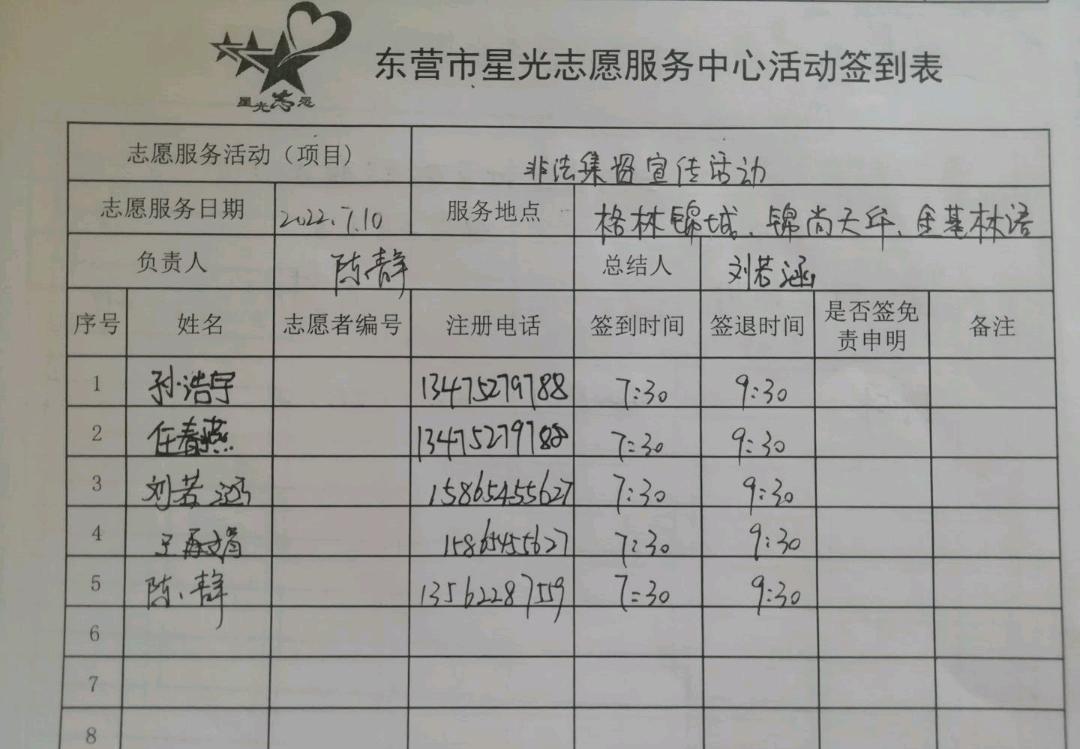 星光志愿
东营市星光志愿服务中心活动签到表
志愿服务活动（项目） 非法集资宣传活动
志愿服务日期 2022.7.10 服务地点 格林锦城、锦尚天年、金基林语
负责人 陈静 总结人 刘若涵
序号 姓名 志愿者编号 注册电话 签到时间 签退时间 是否签免责申明 备注
1 孙浩宇 13475279788 7:30 9:30
2 任春燕 13475279788 7:30 9:30
3 刘若涵 15865455627 7:30 9:30
4 王 娟 15865455627 7:30 9:30
5 陈静 13562287559 7:30 9:30
6
7
8